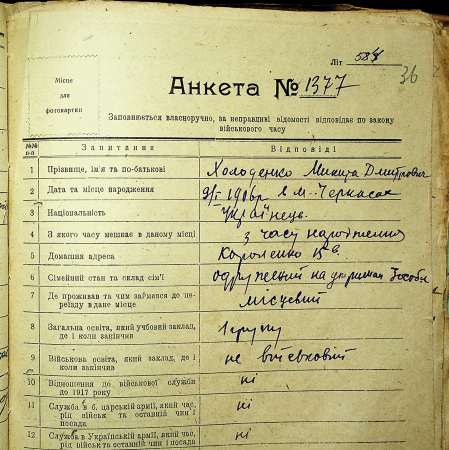 Літ 584
36
Місце
для
фотокартки
Анкета № 1377
Заповнюється власноручно, за неправдиві відомості відповідає по закону
військового часу
№№ п-п Запитання Відповіді
1 Прізвище, ім'я та по-батькові Холоденко Микита Дмитрович
2 Дата та місце народження 9/I 1906р в м. Черкасах
3 Національність Українець
4 З якого часу мешкає в даному місці з часу народження
5 Домашня адреса Короленко
6 Сімейний стан та склад сім'ї одружений на утриман
7 Де проживав та чим займався до пе-
реїзду в дане місце місцевий
8 Загальна освіта, який учбовий заклад,
де і коли закінчив 1 групу
9 Військова освіта, який заклад, де і
коли закінчив не військовий
10 Відношення до військової служби
до 1917 року ні
11 Служба в б. царській армії, який час,
рід військ та останній чин і
посада ні
12 Служба в Українській армії, який час,
рід військ та останній чин і посада ні